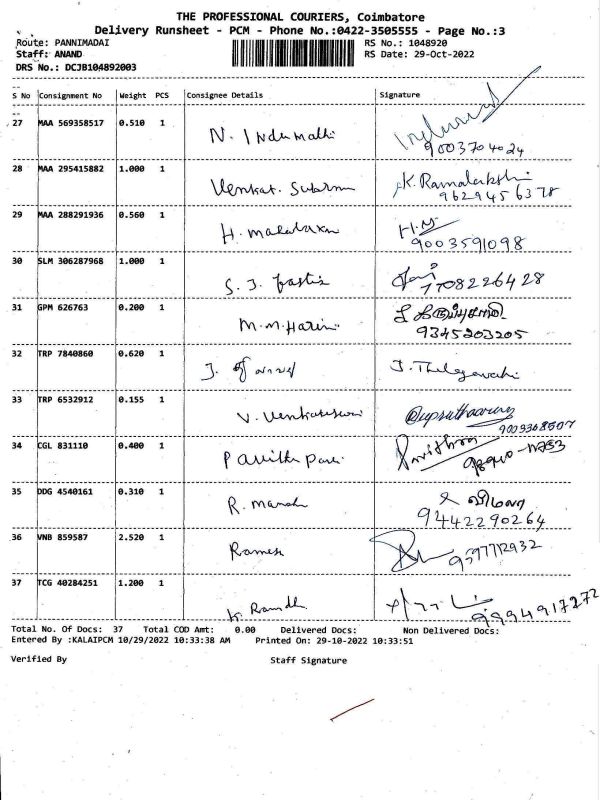 THE PROFESSIONAL COURIERS, Coimbatore
Delivery Runsheet - PCM - Phone No.:0422-3505555 - Page No.:3
Route: PANNIMADAI RS No.: 1048920
Staff: ANAND RS Date: 29-Oct-2022
DRS No.: DCJB104892003
S No Consignment No Weight PCS Consignee Details Signature
27 MAA 569358517 0.510 1 N. Indumathi
9003704024
28 MAA 295415882 1.000 1 Venkat. K. Ramalakshi
9629456378
29 MAA 288291936 0.560 1 H. H.M
9003591098
30 SLM 306287968 1.000 1 S. J.
7708226428
31 GPM 626763 0.200 1 M.M.Harini
9345203205
32 TRP 7840860 0.620 1 J. J. Thilagavathi
33 TRP 6532912 0.155 1 V. Venkateswari
34 CGL 831110 0.400 1 Pavithra
35 DDG 4540161 0.310 1 R. விமலா
9442290264
36 VNB 859587 2.520 1 Ramesh
37 TCG 40284251 1.200 1 K.
9994917272
Total No. Of Docs: 37 Total COD Amt: 0.00 Delivered Docs: Non Delivered Docs:
Entered By :KALAIPCM 10/29/2022 10:33:38 AM Printed On: 29-10-2022 10:33:51
Verified By Staff Signature